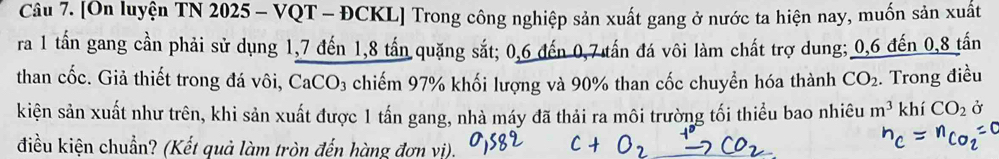 Câu 7. [Ôn luyện TN 2025 – VQT – ĐCKL] Trong công nghiệp sản xuất gang ở nước ta hiện nay, muốn sản xuất
ra 1 tấn gang cần phải sử dụng 1,7 đến 1,8 tấn quặng sắt; 0,6 đến 0,7 tấn đá vôi làm chất trợ dung; 0,6 đến 0,8 tấn
than cốc. Giả thiết trong đá vôi, CaCO₃ chiếm 97% khối lượng và 90% than cốc chuyển hóa thành CO₂. Trong điều
kiện sản xuất như trên, khi sản xuất được 1 tấn gang, nhà máy đã thải ra môi trường tối thiểu bao nhiêu m³ khí CO₂ ở
điều kiện chuẩn? (Kết quả làm tròn đến hàng đơn vị). 0,582 C + O₂ t° → CO₂ n_C = n_CO₂ =